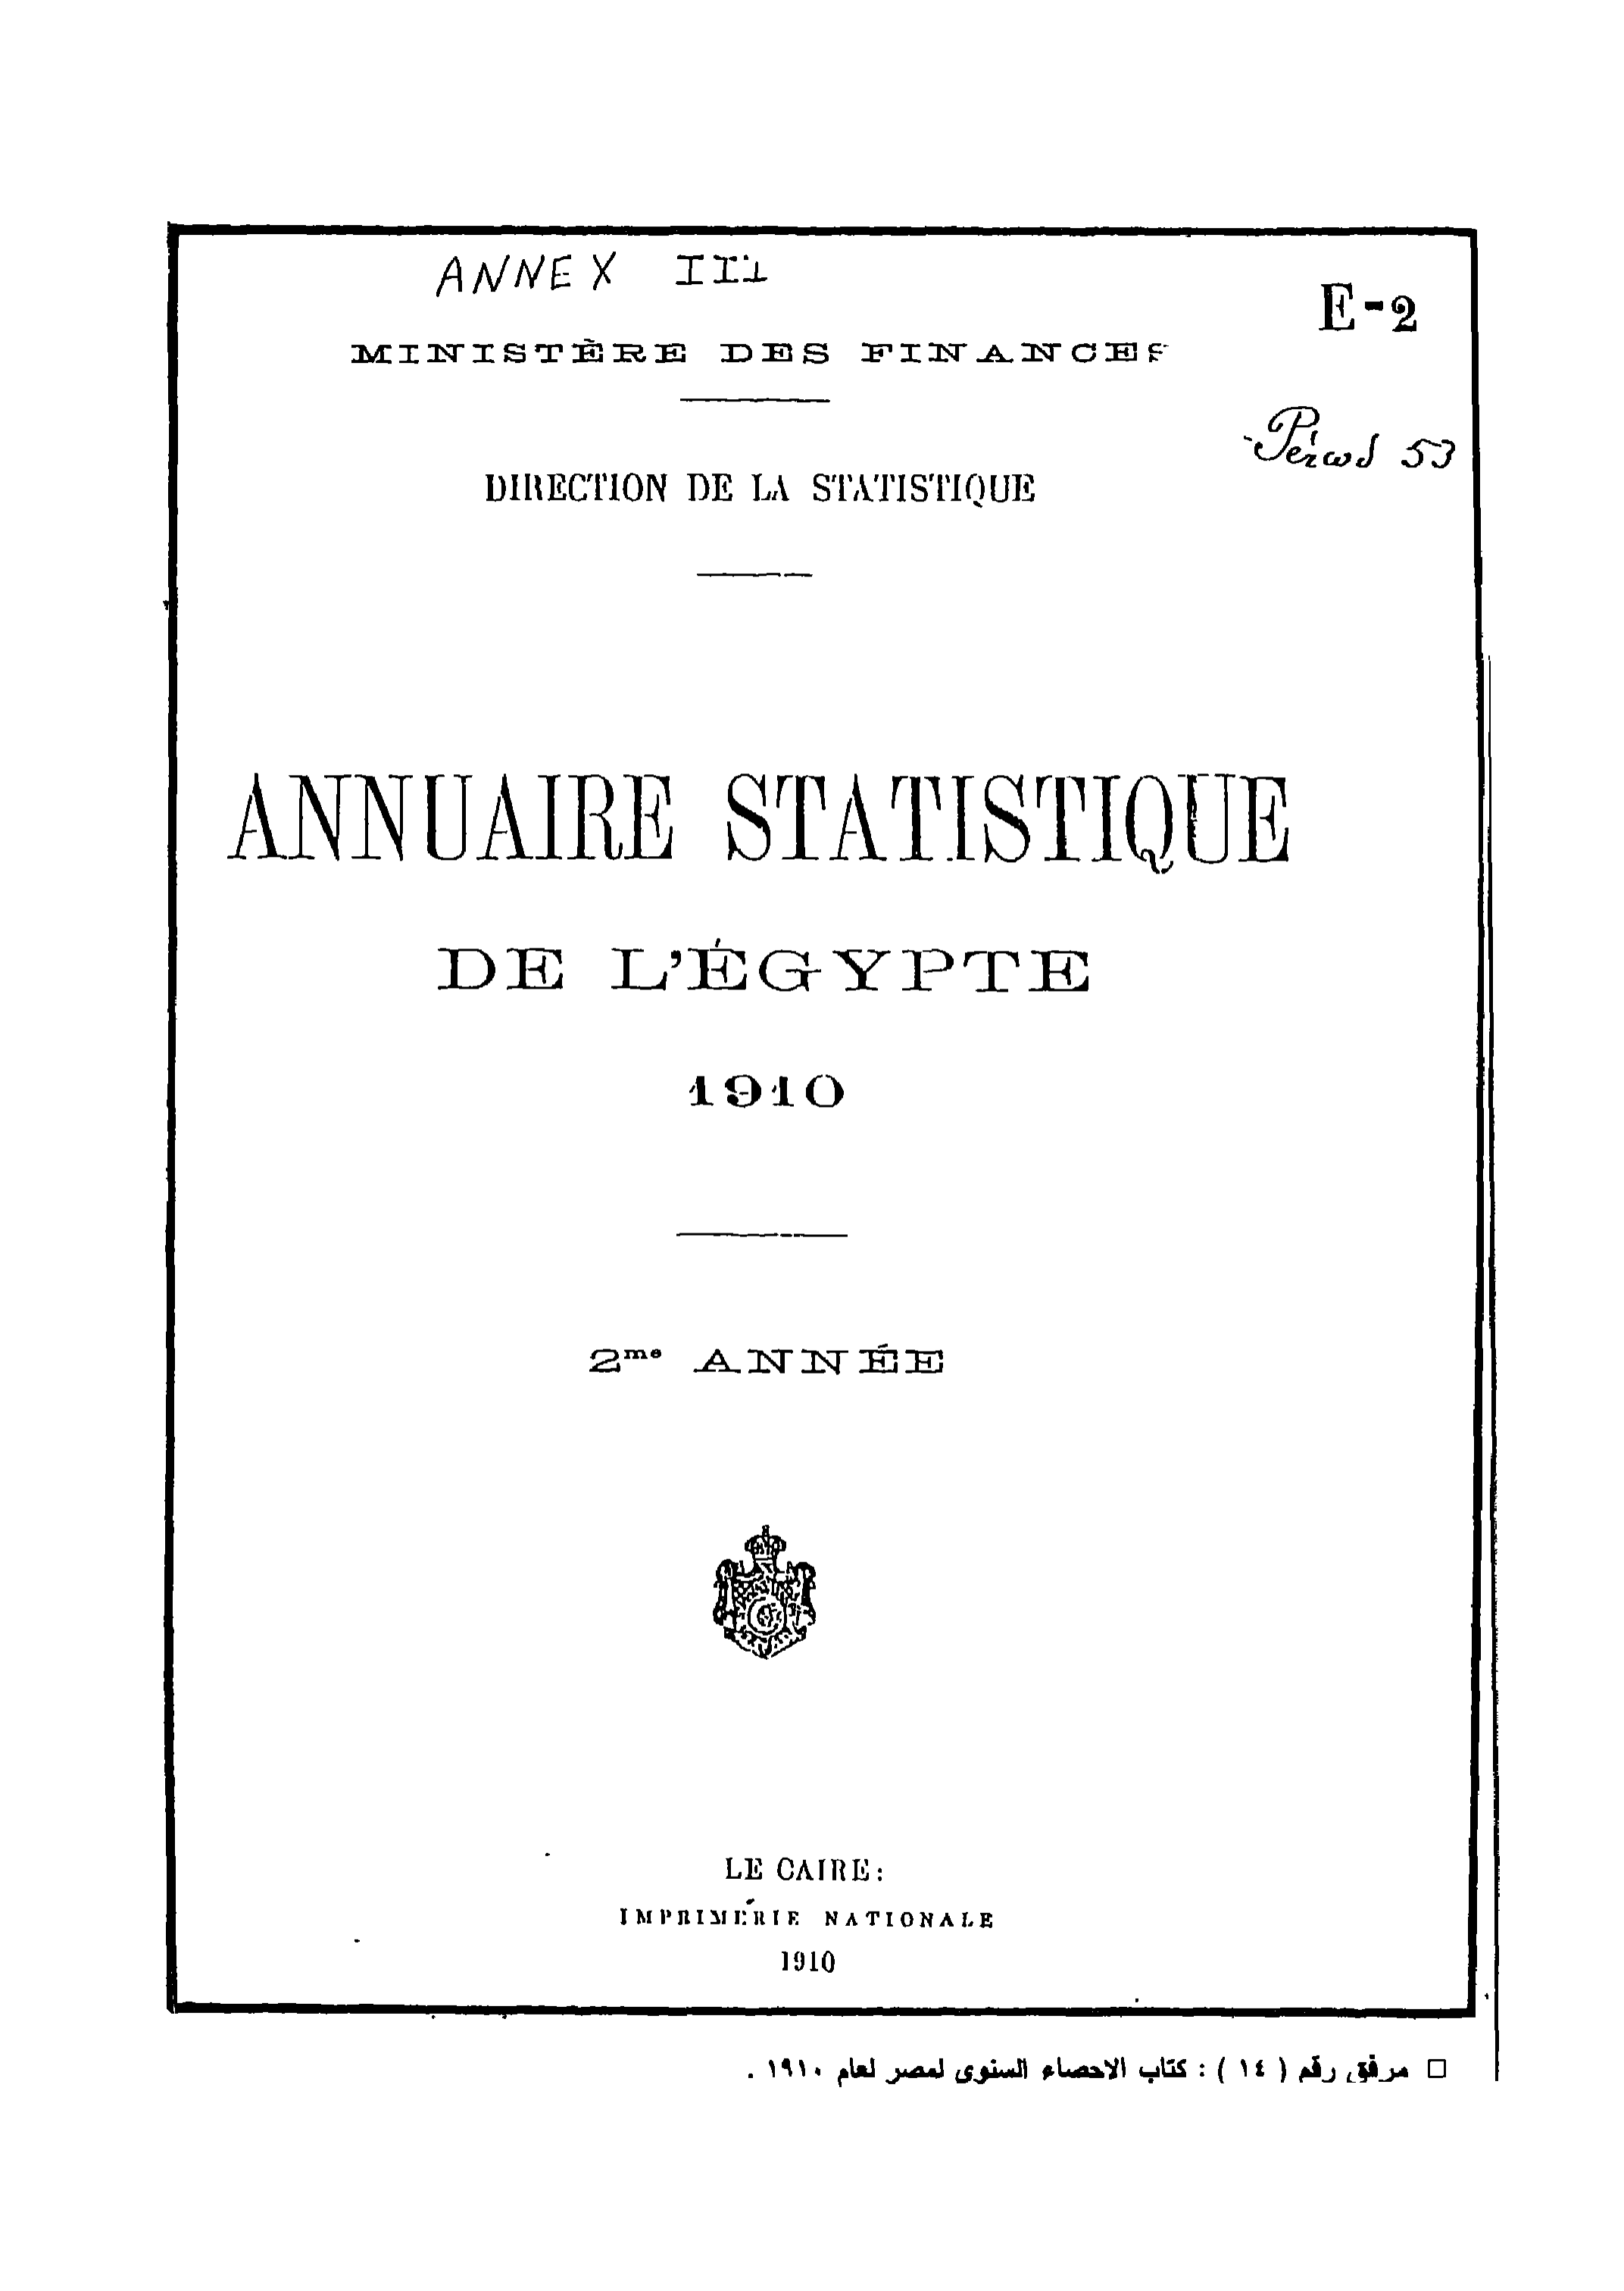 ANNEX III
E-2
MINISTÈRE DES FINANCES
53
DIRECTION DE LA STATISTIQUE
ANNUAIRE STATISTIQUE
DE L'ÉGYPTE
1910
2me ANNÉE
LE CAIRE:
IMPRIMERIE NATIONALE
1910
□ مرفق رقم ( ١٤ ) : كتاب الاحصاء السنوى لمصر لعام ١٩١٠ .